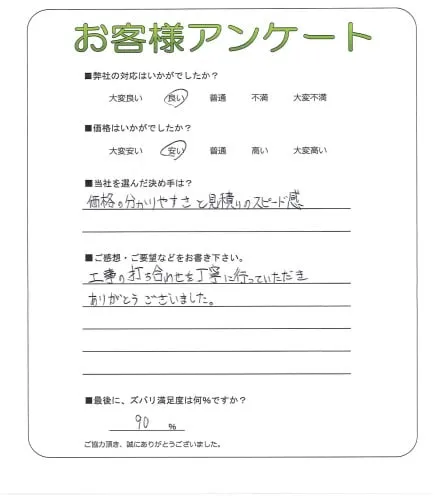 お客様アンケート
■弊社の対応はいかがでしたか？
大変良い 良い 普通 不満 大変不満
■価格はいかがでしたか？
大変安い 安い 普通 高い 大変高い
■当社を選んだ決め手は？
価格の分かりやすさと見積りのスピード感
■ご感想・ご要望などをお書き下さい。
工事の打ち合わせを丁寧に行っていただき
ありがとうございました。
■最後に、ズバリ満足度は何％ですか？
90 ％
ご協力頂き、誠にありがとうございました。